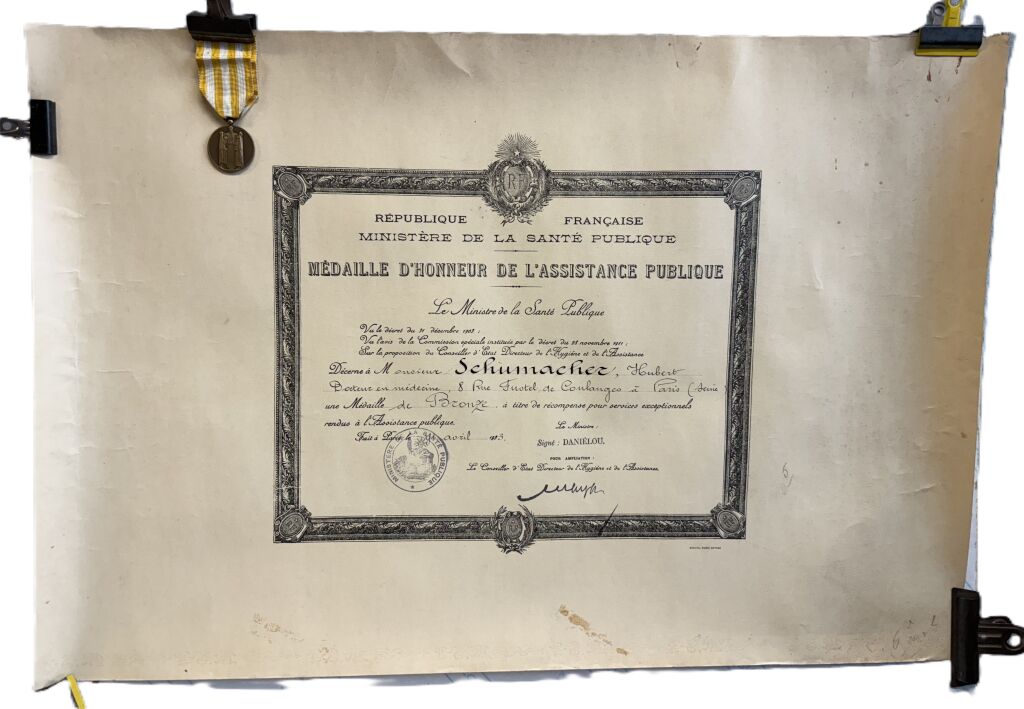 RF
RÉPUBLIQUE FRANÇAISE
MINISTÈRE DE LA SANTÉ PUBLIQUE
MÉDAILLE D'HONNEUR DE L'ASSISTANCE PUBLIQUE
Le Ministre de la Santé Publique
Vu le décret du 31 décembre 1903 ;
Vu l'avis de la Commission spéciale instituée par le décret du 28 novembre 1911 ;
Sur la proposition du Conseiller d'Etat Directeur de l'Hygiène et de l'Assistance
Décerne à Monsieur Schumacher, Hubert
Docteur en médecine, 8 Rue Fustel de Coulanges à Paris (Seine)
une Médaille de Bronze à titre de récompense pour services exceptionnels
rendus à l'Assistance publique.
Fait à Paris, le avril
Le Ministre :
Signé : DANIÉLOU.
POUR AMPLIATION :
Le Conseiller d'Etat Directeur de l'Hygiène et de l'Assistance,
MINISTÈRE DE LA SANTÉ PUBLIQUE